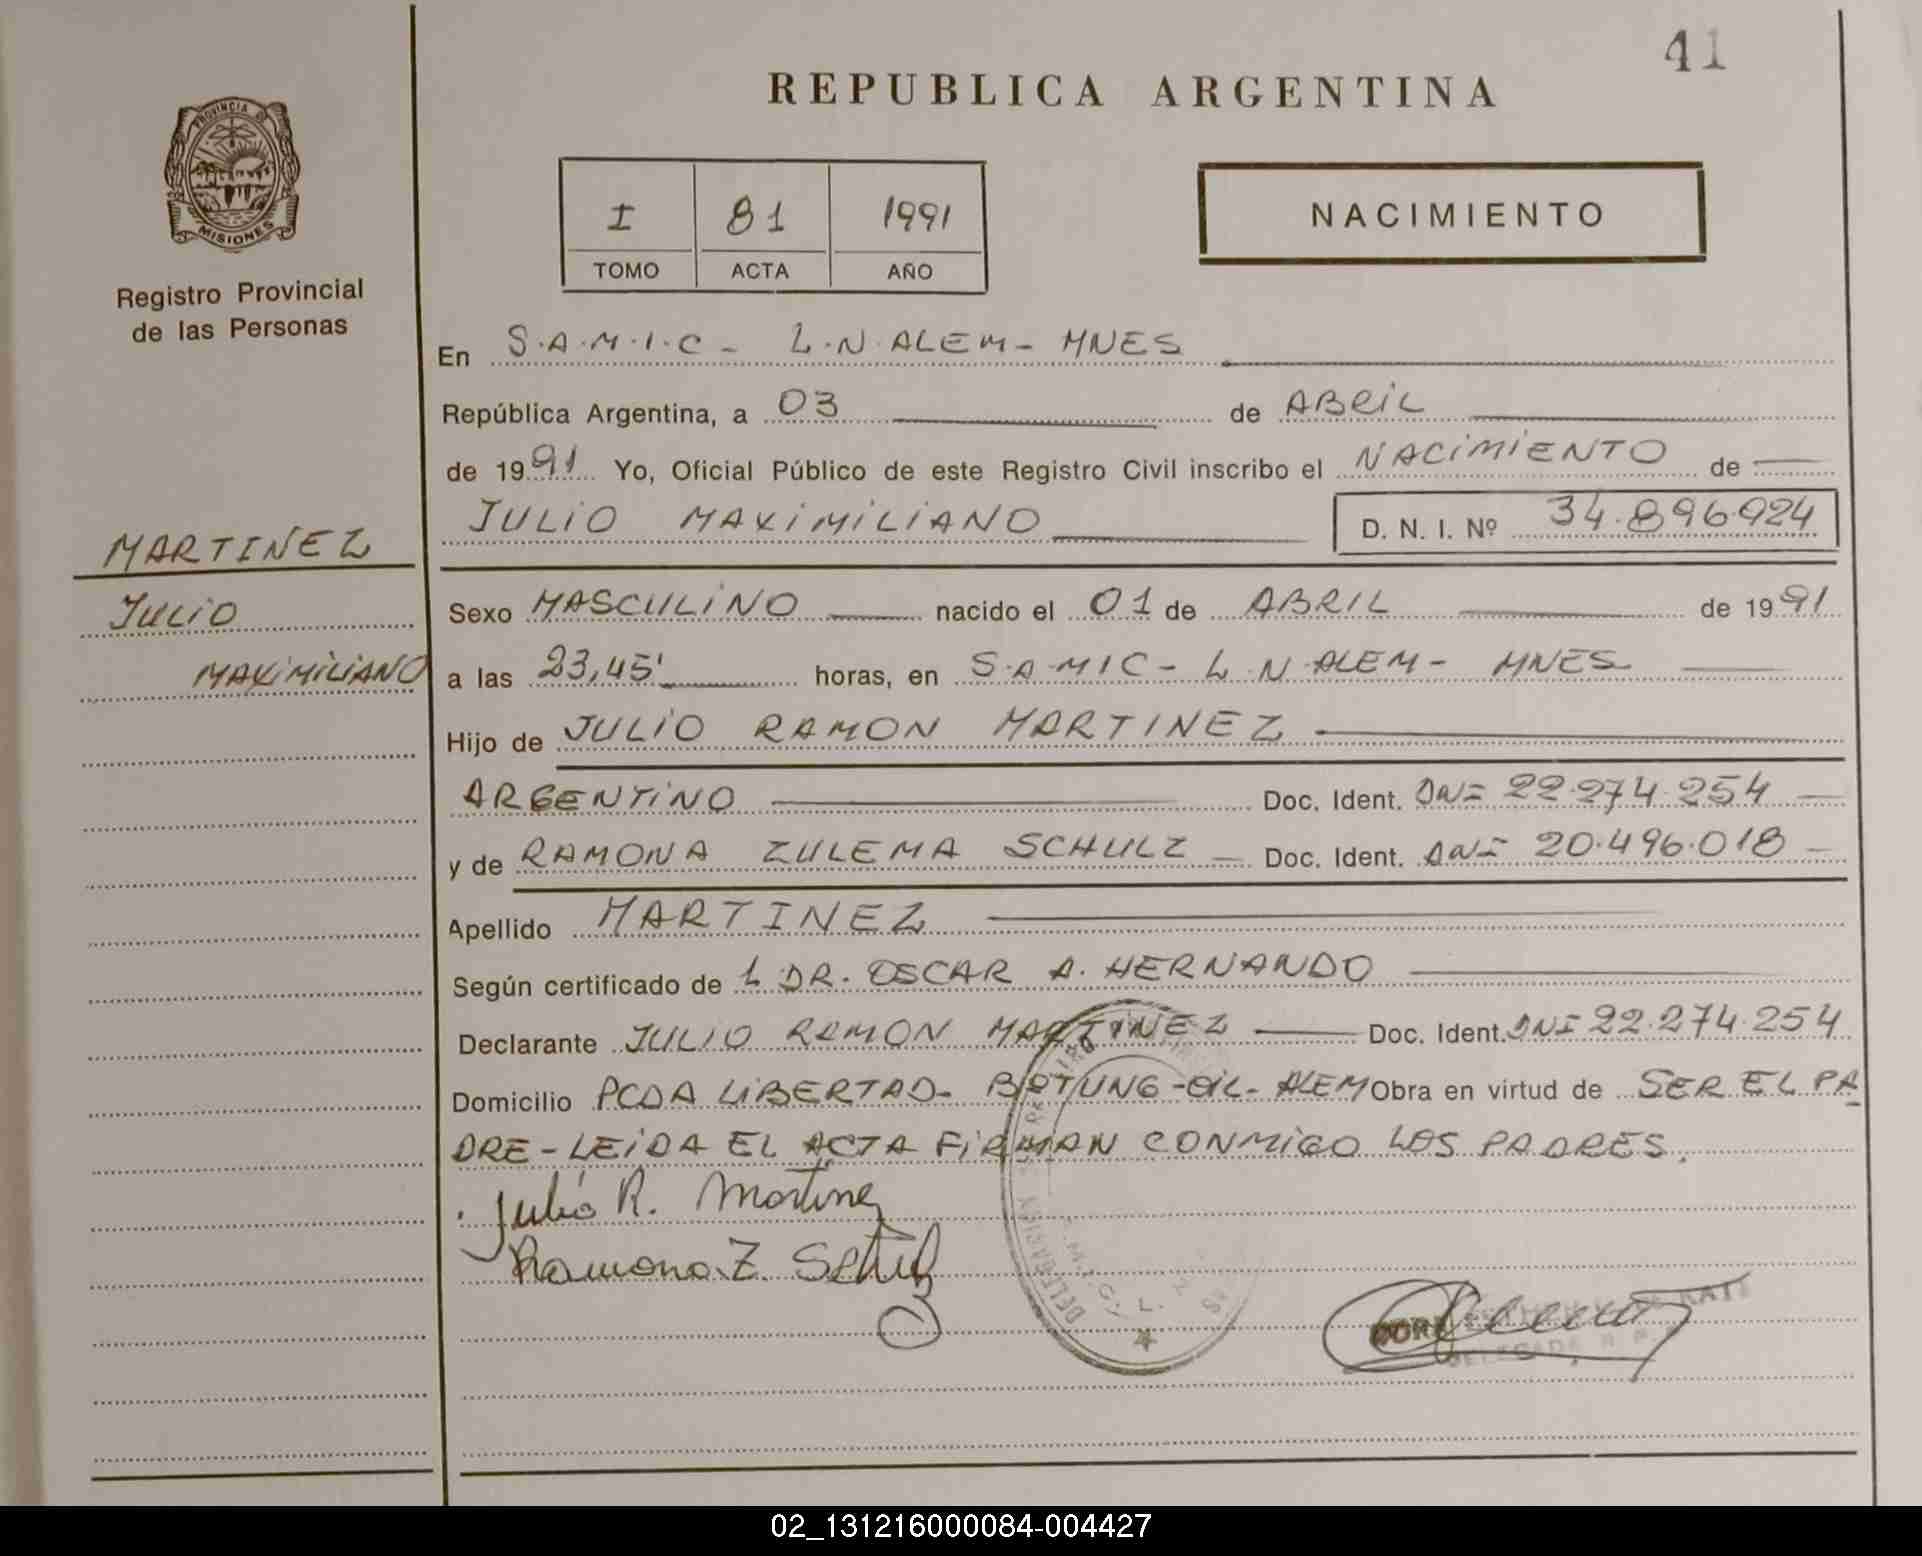 41
REPUBLICA ARGENTINA
PROVINCIA DE
MISIONES
Registro Provincial
de las Personas
I 81 1991
TOMO ACTA AÑO
NACIMIENTO
En S.A.M.I.C - L.N.ALEM - MNES
República Argentina, a 03 de ABRIL
de 1991 Yo, Oficial Público de este Registro Civil inscribo el NACIMIENTO de
JULIO MAXIMILIANO D. N. I. Nº 34.896.924
MARTINEZ
JULIO
MAXIMILIANO
Sexo MASCULINO nacido el 01 de ABRIL de 1991
a las 23,45' horas, en S.A.MIC - L.N.ALEM - MNES
Hijo de JULIO RAMON MARTINEZ
ARGENTINO Doc. Ident. DNI 22.274.254
y de RAMONA ZULEMA SCHULZ Doc. Ident. DNI 20.496.018
Apellido MARTINEZ
Según certificado de L DR. OSCAR A. HERNANDO
Declarante JULIO RAMON MARTINEZ Doc. Ident. DNI 22.274.254
Domicilio PCDA LIBERTAD - Obra en virtud de SER EL PA
DRE - LEIDA EL ACTA FIRMAN CONMIGO LOS PADRES.
Julio R. Martinez
Ramona Z. Schulz
DELEGACION
DELEGADA
02_131216000084-004427